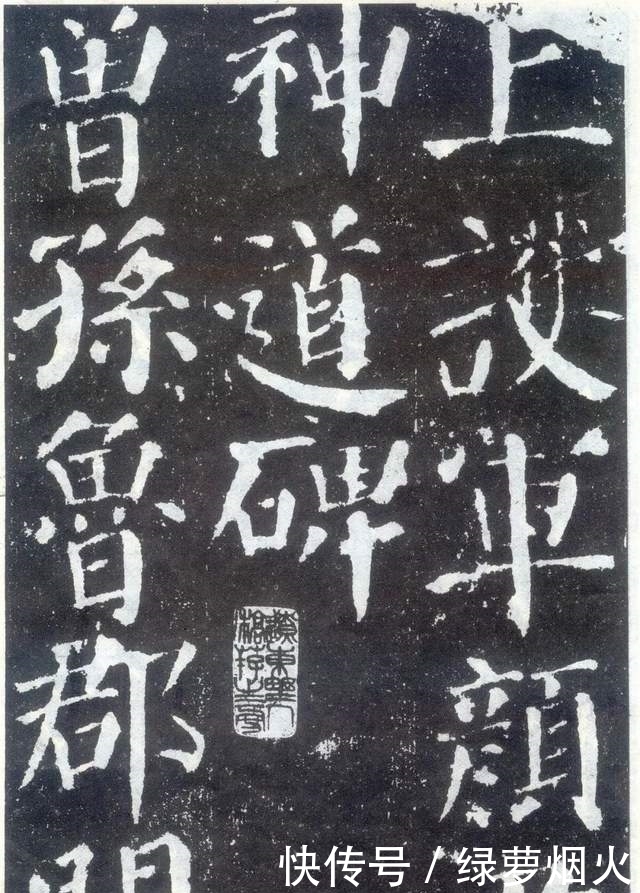 上護軍顏
神道碑
曾孫魯郡
快传号 / 绿萝烟火